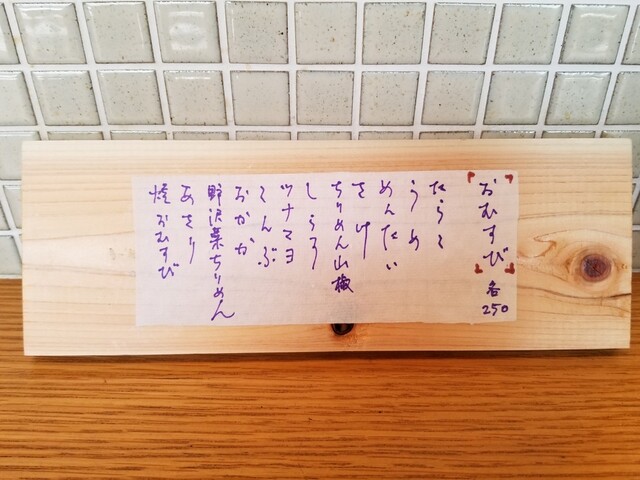 おむすび 各250
たらこ
うめ
めんたい
さけ
ちりめん山椒
しらす
ツナマヨ
こんぶ
おかか
野沢菜ちりめん
あさり
焼おむすび